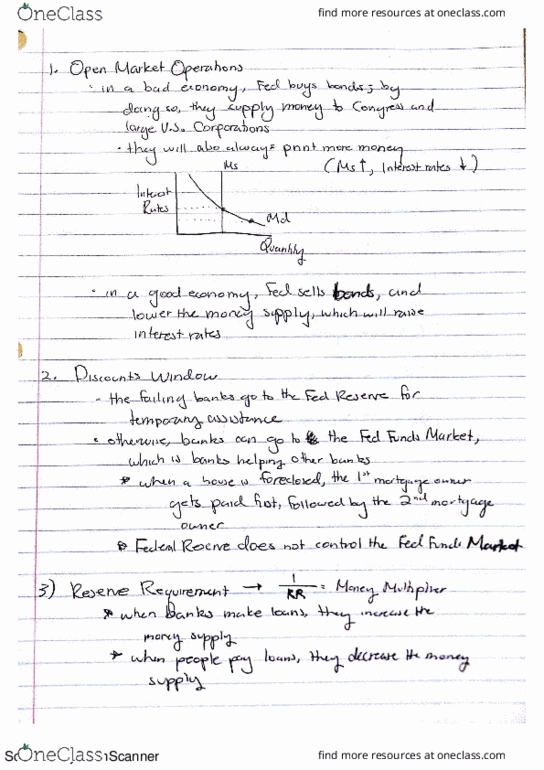 OneClass
find more resources at oneclass.com
1. Open Market Operations
· in a bad economy, Fed buys bonds; by
doing so, they supply money to Congress and
large U.S. Corporations
· they will also always print more money
(Ms↑, Interest rates ↓)
Ms
Interest
Rates
Md
Quantity
· in a good economy, Fed sells bonds, and
lower the money supply, which will raise
interest rates
2. Discounts Window
- the failing banks go to the Fed Reserve for
temporary assistance
· otherwise, banks can go to the Fed Funds Market,
which is banks helping other banks
* when a house is foreclosed, the 1st mortgage owner
gets paid first, followed by the 2nd mortgage
owner
Federal Reserve does not control the Fed Funds Market
3) Reserve Requirement → 1/RR = Money Multiplier
* when banks make loans, they increase the
money supply
* when people pay loans, they decrease the money
supply
OneClass
Scanner
find more resources at oneclass.com